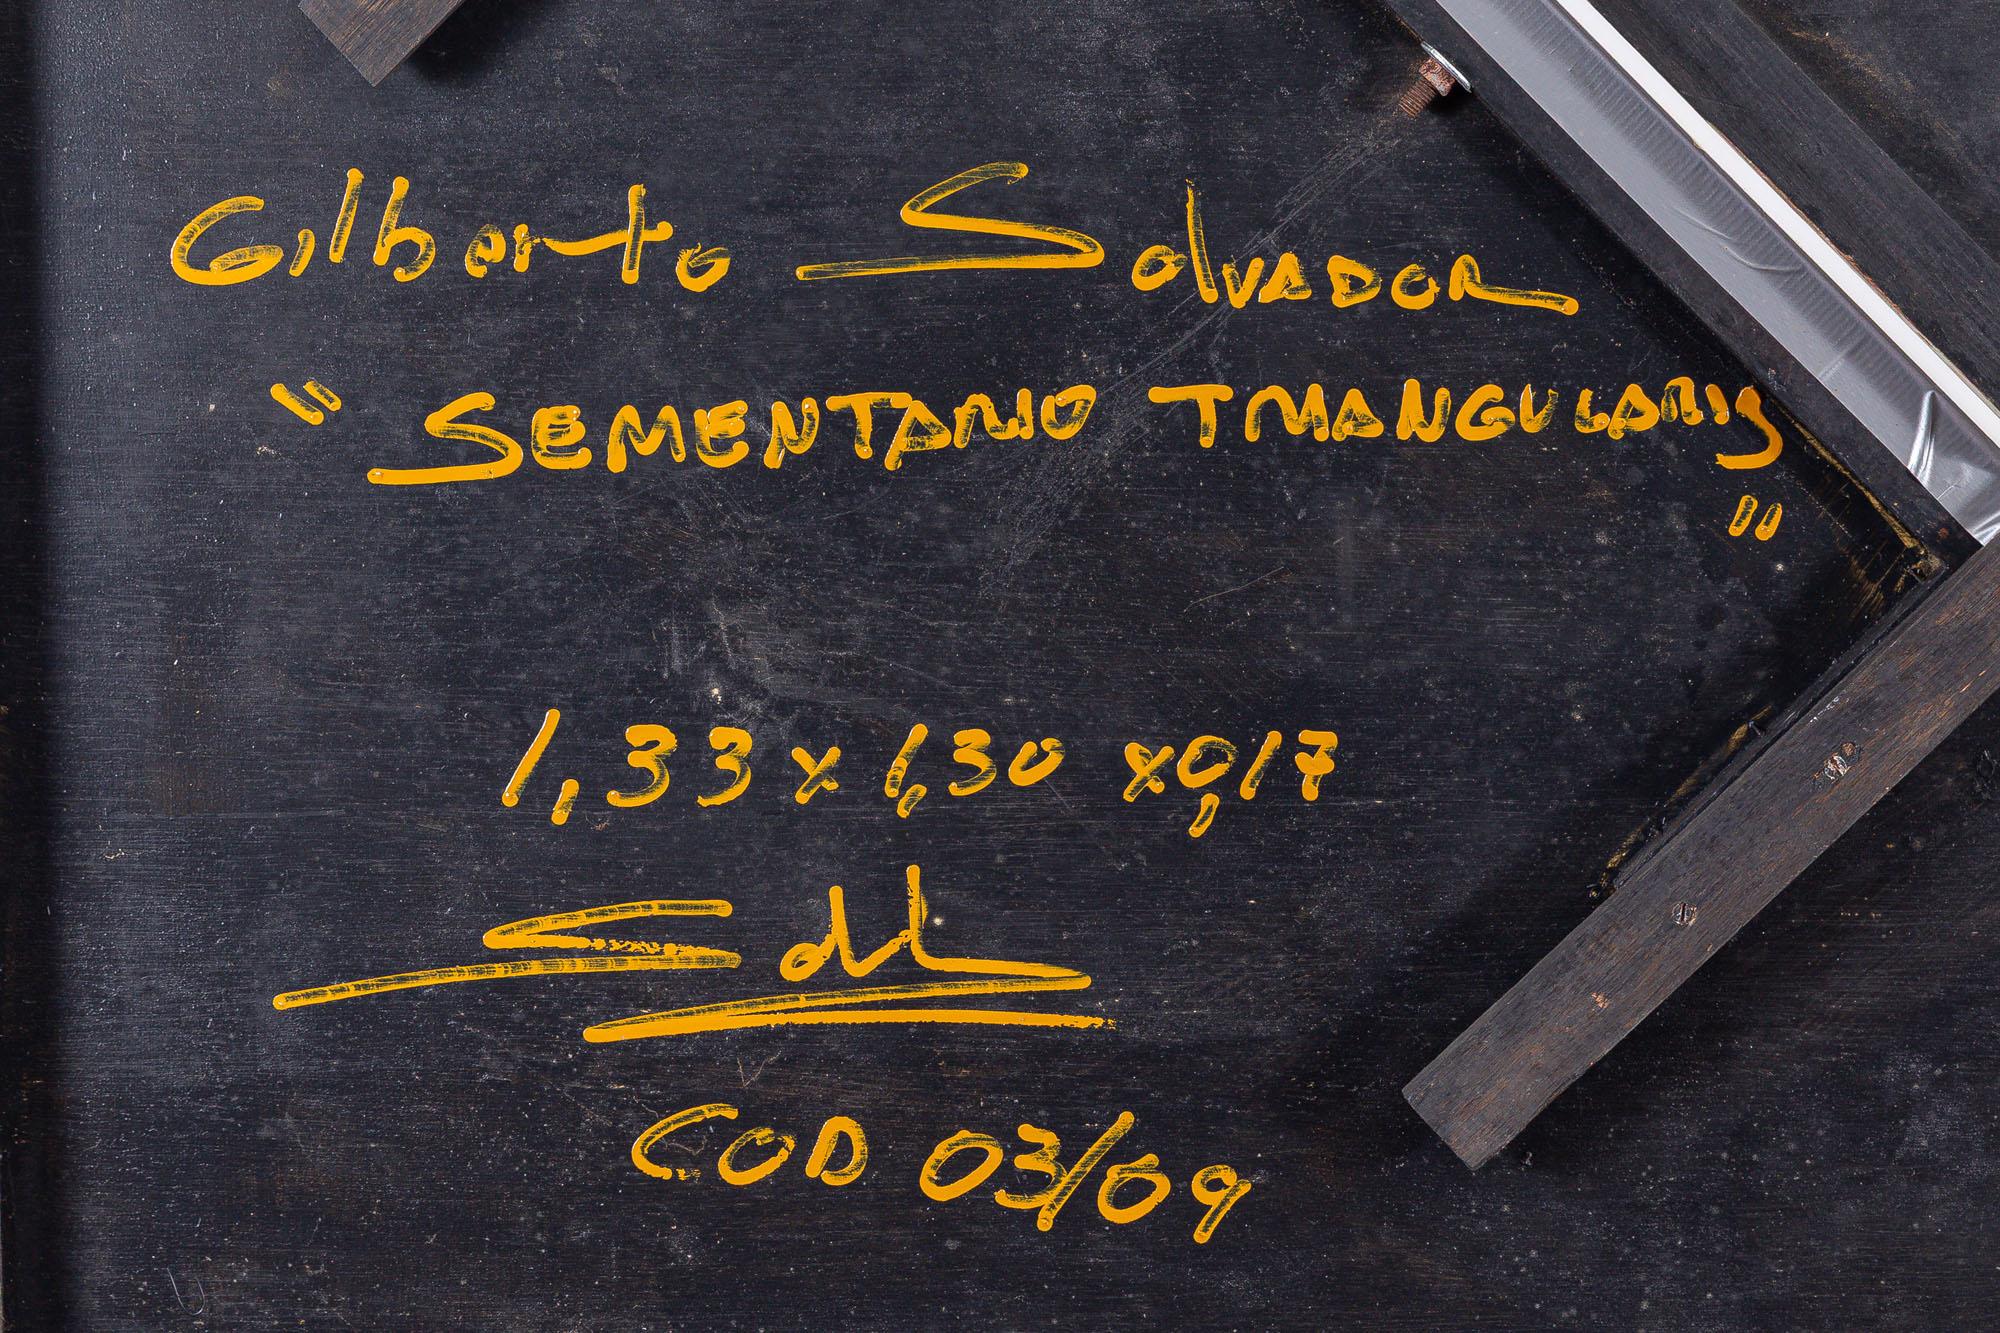 Gilberto Salvador
"SEMENTARIO TRIANGULARIS"
1,33 x 1,30 x 0,17
COD 03/09